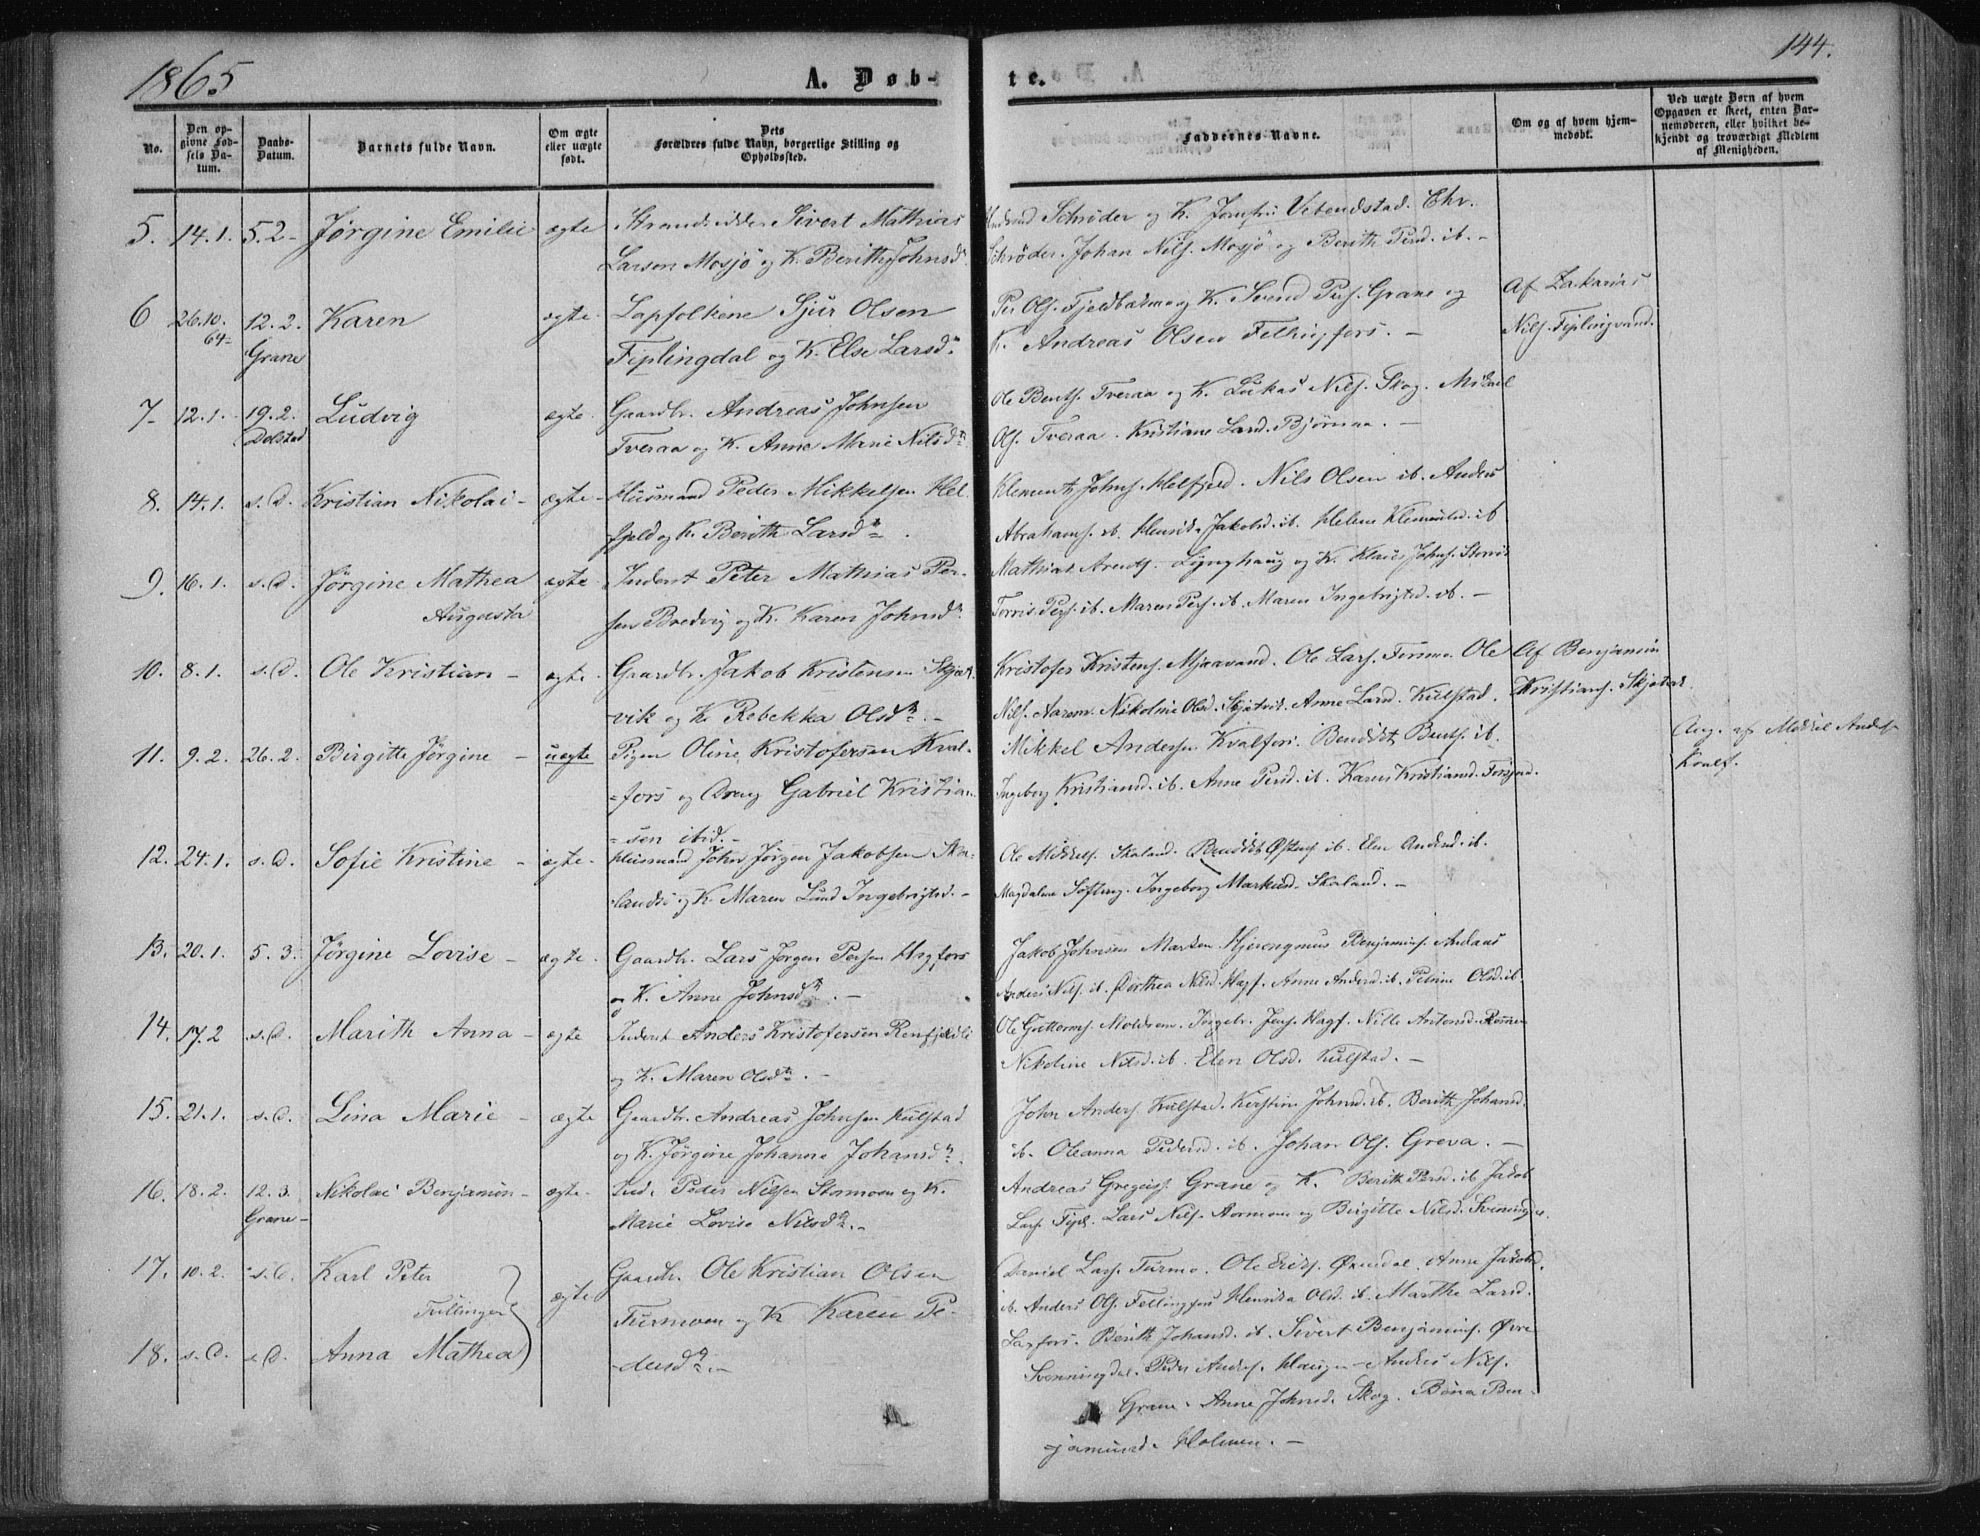 1865
A. Døb-
te.
144.
No.
Den op-
givne Fød-
sels Da-
tum.
Daabs-
Datum.
Barnets fulde Navn.
Om ægte
eller uægte
født.
Dets
Forældres fulde Navn, borgerlige Stilling og
Opholdssted.
Faddernes Navne.
Om og af hvem hjem-
medøbt.
Ved uægte Børn af hvem
Opgaven er skeet, enten Bar-
nemoderen, eller hvilket be-
kjendt og troværdigt Medlem
af Menigheden.
5. 14.1. 5.2- Jørgine Emilie ægte Strandsidder Sivert Mathias
Larsen Mosjø og K. Berith Johnsd.
Schrøder og K. Jomfru Vebendstad. Chr.
Schrøder. Johan Nils. Mosjø og Berith Persd. ib. -
6 26.10. 12.2. Karen ægte. Lapfolkene Sjur Olsen
64- Grane Fiplingdal og K. Else Larsd.
Per Ols. Fjeldbakmo og K. Svend Pers. Grane og
K. Andreas Olsen Fellingfors. -
Af Zakarias
Nils. Fiplingvand.
7- 12.1. 19.2. Ludvig ægte. Gaardbr. Andreas Johnsen
Dolstad Tveraa og K. Anne Marie Nilsdn
Ole Bents. Tveraa og K. Lukas Nils. Skog. Mikael
Ols. Tveraa. Kristiane Larsd. Bjørnaa. -
8. 14.1. s.D. Kristian Nikolai - ægte - Husmand Peder Mikkelsen Hel
fjeld og K. Berith Larsd.
Klement Johns. Helfjeld. Nils Olsen ib. Anders
Abrahams. ib. Henrik. Jakobsd. ib. Helene Klementsd. ib
9. 16.1. s.D. Jørgine Mathea ægte - Inderst Peter Mathias Per-
Augusta sen Bredvig og K. Karen Johnsd.
Mathias Arents. Lynghaug og K. Klaus Johns.
Pers. ib. Maren Pers. ib. Maren Ingebrigtsd. ib. -
10. 8.1. s.D. Ole Kristian - ægte. Gaardbr. Jakob Kristensen Skjæt-
vik og K. Rebekka Olsd. -
Kristofer Kristens. Mjaavand. Ole Lars. Ole
Nils. Aarem. Nikoline Olsd. Skjætvik. Anne Larsd. Kulstad.
Af Benjamin
Kristians. Skjætvik
11. 9.2. 26.2. Birgitte Jørgine - uægte Pigen Oline Kristofersen Kval-
fors og Gabriel Kristian-
sen ibid. -
Mikkel Andersen Kvalfors. Bendikt Bents. ib.
Ingeborg Kristiansd. ib. Anne Persd. ib. Karen Kristiansd.
Ang. af Mikkel Anders
Kvalf.
12. 24.1. s.D. Sofie Kristine - ægte - Husmand John Jørgen Jakobsen Ska-
land og K. Maren Lund Ingebrigtsd. -
Ole Mikkels. Skaland. Bendikt ib. Elen Andersd. ib.
Magdalene Ingeborg Markusd. Skaland. -
13. 20.1. 5.3. Jørgine Lovise - ægte. Gaardbr. Lars Jørgen Persen Hagfors
og K. Anne Johnsd. -
Jakob Johnsen Marken. Hjeronymus Benjamins.
Anders Nils. ib. Dorthea Nilsd. Hagf. Anne Andersd. ib. Petrine Olsd. ib
14. 17.2 s.D. Marith Anna - ægte Inderst Anders Kristofersen Renfjeldli
og K. Maren Olsd. -
Ole Guttorms. Moldrem. Ingebr. Jens. Hagf. Nille Antonsd.
Nikoline Nilsd. ib. Elen Olsd. Kulstad. -
15. 21.1. s.D. Lina Marie - ægte Gaardbr. Andreas Johnsen Kulstad
og K. Jørgine Johanna Johansd.
John Anders. Kulstad. Kirstine Johnsd. ib. Berith Johansd.
ib. Oleanna Pedersd. ib. Johan Ols. Greva. -
16. 18.2. 12.3. Nikolai Benjamin - ægte - Ind. Peder Nilsen Stormoen og K.
Grane - Marie Lovise Nilsd. -
Andreas Gregers. Grane og K. Berith Persd. ib. Jakob
Lars. Fipl. Lars Nils. Stormoen og Birgitte Nilsd.
17. 10.2. s.D. Karl Peter
Tvillinger ægte Gaardbr. Ole Kristian Olsen
Turmoen og K. Karen Pe-
18. s.D. s.D. Anna Mathea dersd. -
Daniel Lars. Turmo. Ole Eriks. Anne Jakobsd.
ib. Anders Ols. Fellingfors Henrika Olsd. ib. Marthe Larsd.
Laxfors. Berith Johansd. ib. Sivert Benjamins. Øvre
Svenningdal. Peder Anders. Haugen - Anders Nils.
Grane. Anne Johnsd. Skog. Ben-
jaminsd. Holmen. -